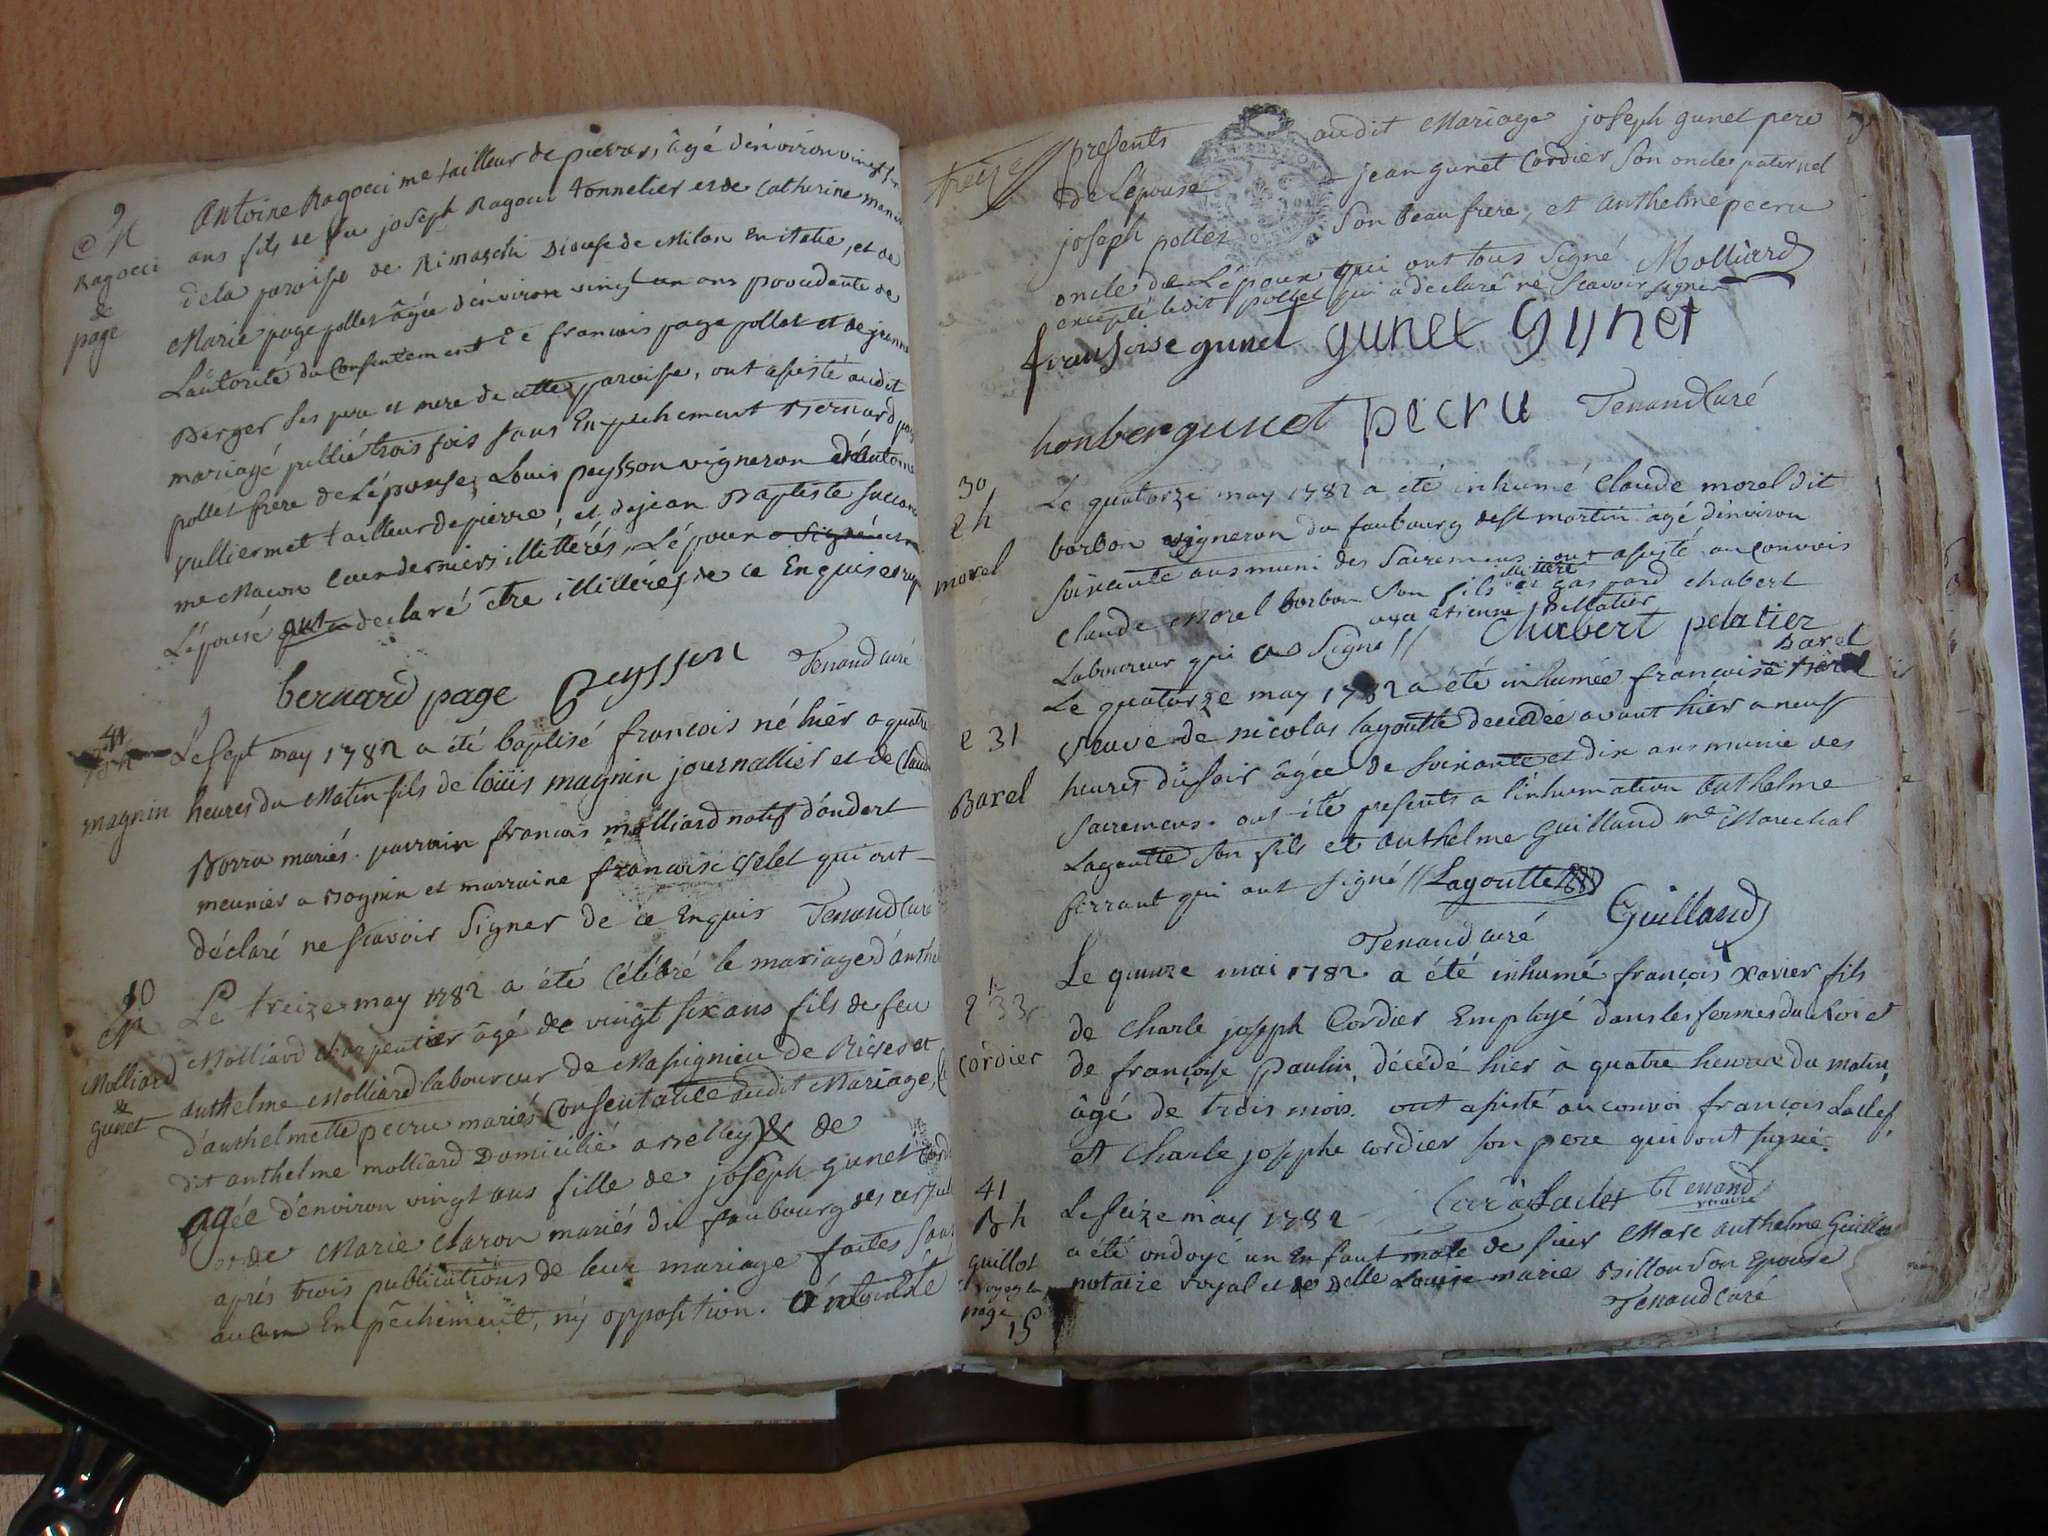 9
M
Ragocci
&
page
Antoine Ragocci me tailleur de pierres, âgé d'environ vingt
ans fils de feu joseph Ragocci tonnelier et de Catherine
de la paroisse de Rimaschi Diocese de Milan En italie, et de
Marie page pollet âgée d'environ vingt un ans procedante de
L'autorité du Consentement de francois page pollet et de jeanne
Berger ses pere et mere de cette paroisse, ont assisté audit
mariage publié trois fois sans Empechement Bernard page
pollet frere de L'épouse, Louis peysson vigneron
vulliermet tailleur de pierre, et de jean Baptiste
me Macon Ces derniers illitérés, L'époux a Signé
L'épouse declaré être illitérés de ce Enquis
bernard page peysson Tenand curé
41
Bh
magnin
Le sept may 1782 a été baptisé francois né hier a quatre
heures du Matin fils de loüis magnin journallier et de Claud
Borra mariés. parrain francois molliard natif d'andert
meunier a Rognin et marraine francoise Velet qui ont
déclaré ne scavoir signer de ce Enquis Tenand curé
10
M
Molliard
&
gunet
Le treize may 1782 a été Célébré le mariage d'anthel
Molliard charpentier âgé de vingt six ans fils de feu
anthelme Molliard laboureur de Massignieu de Rives et
d'anthelmette pecru mariés Consentante audit Mariage,
dit anthelme molliard Domicilié a Belley & de
agée d'environ vingt ans fille de joseph gunet
et de Marie Claron mariés du faubourg des
aprés trois publications de leur mariage faites sans
aucun Empêchement, ny opposition.
treize
presents audit Mariage joseph gunet pere
de L'épouse jean gunet Cordier son oncle paternel
joseph pollet son beau frere, et anthelme pecru
oncle de L'époux qui ont tous signé Molliard
excepté ledit pollet qui a déclaré ne scavoir signer
fransoise gunet gunet gunet
honber gunet pecru Tenand Curé
30
eh
morel
Le quatorze may 1782 a été inhumé Claude morel dit
borbon vigneron du faubourg de st martin agé d'environ
soixante ans muni des sacremens ont assisté au Convois
Claude Morel borbon son fils illitéré et gaspard chabert
Laboureur qui a signé // etienne pellatier Chabert pelatier
e 31
Barel
Barel
Le quatorze may 1782 a été inhumée francoise
veuve de nicolas lagoutte decedée avant hier a neuf
heures du soir âgée de soixante et dix ans munie des
sacremens. ont été presents a l'inhumation anthelme
Lagoutte son fils et anthelme Guilland me Marechal
ferrant qui ont signé // Lagoutte Guilland
Tenand curé
33
cordier
Le quinze mai 1782 a été inhumé françois Xavier fils
de Charle joseph Cordier Employé dans les fermes du Roi et
de françoise paulin, décédé hier à quatre heures du matin,
âgé de trois mois. ont assisté au convoi françois Laclef,
et Charle josephe cordier son pere qui ont signé.
Tenand
41
Bh
guillot
voyez la
page
15
Le seize may 1782
a été ondoyé un Enfant male de sieur Marc anthelme
notaire royal et de Delle Louise marie Billon son Epouse
Tenand Curé